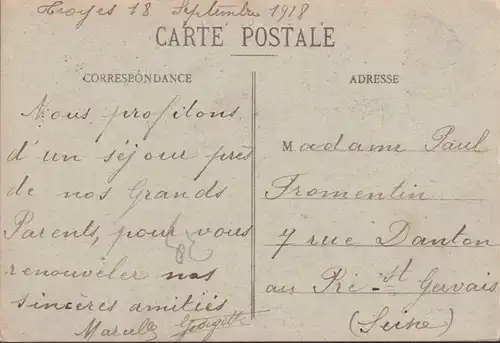 Troyes 18 Septembre 1918
CARTE POSTALE
CORRESPONDANCE
Nous profitons
d'un séjour près
de nos Grands
Parents, pour vous
renouveler nos
sincères amitiés
Marcelle Georgette
ADRESSE
Madame Paul
Fromentin
7 rue Danton
au Pré-St Gervais
(Seine)